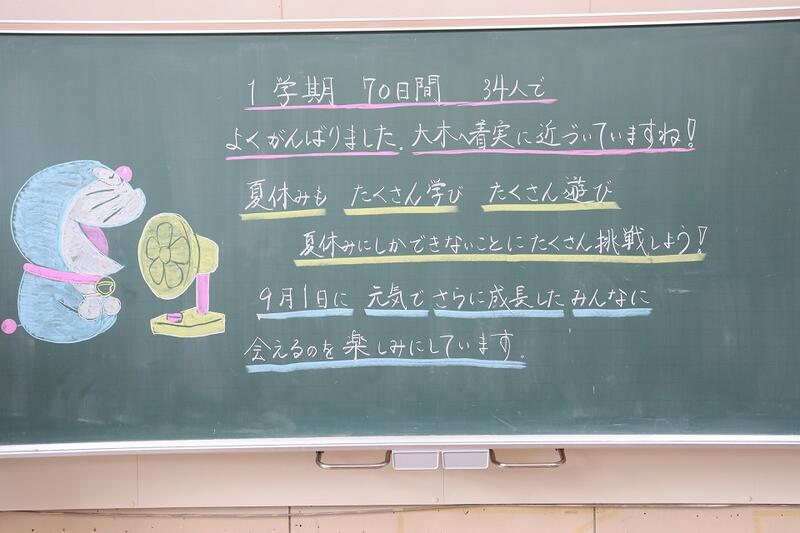 1学期 70日間 34人で
よくがんばりました。大木へ着実に近づいていますね!
夏休みも たくさん学び たくさん遊び
夏休みにしかできないことにたくさん挑戦しよう!
9月1日に 元気で さらに成長した みんなに
会えるのを楽しみにしています。